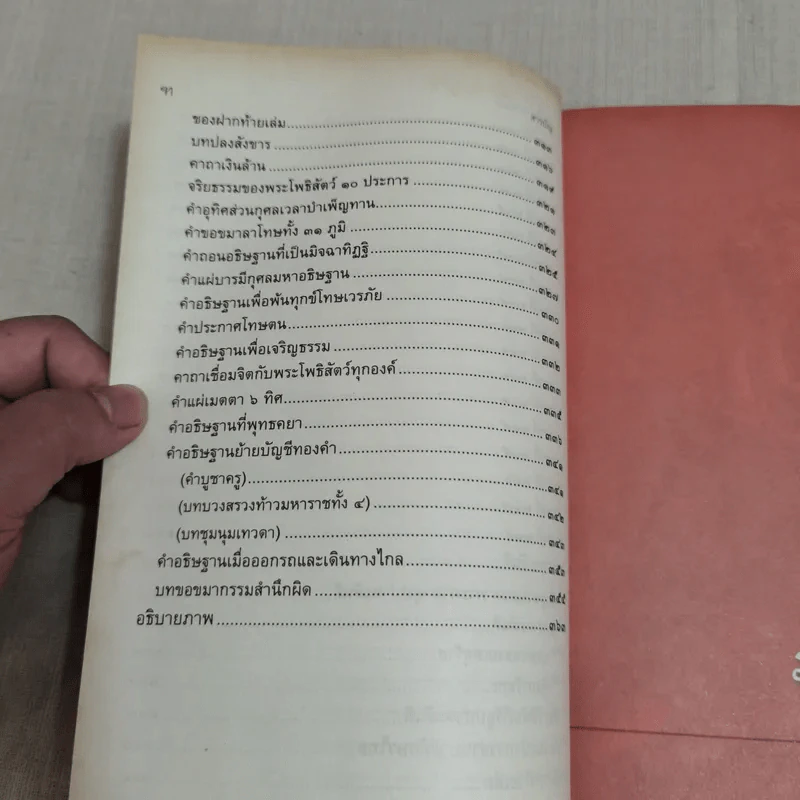 ของฝากท้ายเล่ม ๓๑๓
บทปลงสังขาร ๓๑๖
คาถาเงินล้าน ๓๑๙
จริยธรรมของพระโพธิสัตว์ ๑๐ ประการ ๓๒๑
คำอุทิศส่วนกุศลเวลาบำเพ็ญทาน ๓๒๓
คำขอขมาลาโทษทั้ง ๓๑ ภูมิ ๓๒๔
คำถอนอธิษฐานที่เป็นมิจฉาทิฏฐิ ๓๒๕
คำแผ่บารมีกุศลมหาอธิษฐาน ๓๒๗
คำอธิษฐานเพื่อพ้นทุกข์โทษเวรภัย ๓๓๐
คำประกาศโทษตน ๓๓๑
คำอธิษฐานเพื่อเจริญธรรม ๓๓๒
คาถาเชื่อมจิตกับพระโพธิสัตว์ทุกองค์ ๓๓๓
คำแผ่เมตตา ๖ ทิศ ๓๓๕
คำอธิษฐานที่พุทธคยา ๓๓๖
คำอธิษฐานย้ายบัญชีทองคำ ๓๔๑
(คำบูชาครู) ๓๔๑
(บทบวงสรวงท้าวมหาราชทั้ง ๔) ๓๔๒
(บทชุมนุมเทวดา) ๓๔๓
คำอธิษฐานเมื่อออกรถและเดินทางไกล ๓๕๓
บทขอขมากรรมสำนึกผิด ๓๕๕
อธิบายภาพ ๓๖๓